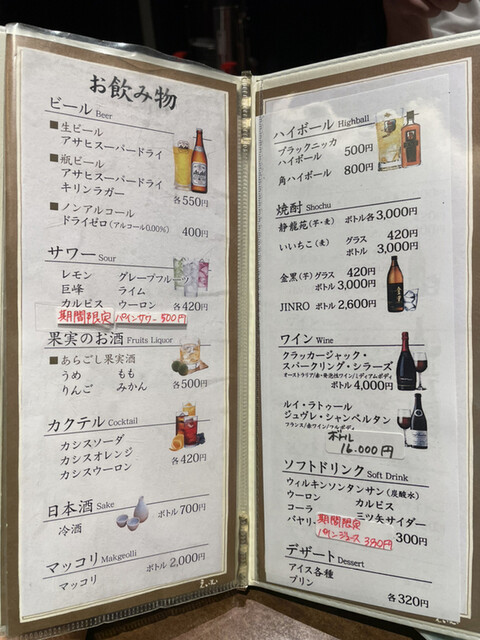 お飲み物
ビール Beer
■生ビール
アサヒスーパードライ
■瓶ビール
アサヒスーパードライ
キリンラガー
各550円
■ノンアルコール
ドライゼロ(アルコール0.00%) 400円
サワー Sour
レモン グレープフルーツ
巨峰 ライム
カルピス ウーロン 各420円
期間限定 パインサワー 500円
果実のお酒 Fruits Liquor
■あらごし果実酒
うめ もも
りんご みかん 各500円
カクテル Cocktail
カシスソーダ
カシスオレンジ
カシスウーロン 各420円
日本酒 Sake
冷酒 ボトル 700円
マッコリ Makgeolli
マッコリ ボトル 2,000円
ハイボール Highball
ブラックニッカ
ハイボール 500円
角ハイボール 800円
焼酎 Shochu
静龍苑(芋・麦) ボトル各3,000円
いいちこ(麦) グラス 420円
ボトル 3,000円
金黒(芋) グラス 420円
ボトル 3,000円
JINRO ボトル 2,600円
ワイン Wine
クラッカージャック・
スパークリング・シラーズ
オーストラリア/赤・発泡性ワイン/ミディアムボディ
ボトル 4,000円
ルイ・ラトゥール
ジュヴレ・シャンベルタン
フランス/赤ワイン/フルボディ
ボトル
16.000円
ソフトドリンク Soft Drink
ウィルキンソンタンサン(炭酸水)
ウーロン カルピス
コーラ 三ツ矢サイダー
バヤリ 300円
期間限定
パインジュース 330円
デザート Dessert
アイス各種
プリン 各320円